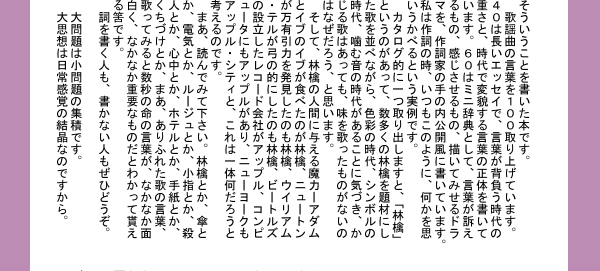 そういうことを書いた本です。
歌謡曲の言葉を100取り上げています。
40は長いエッセイで、言葉が背負う時代の
重さと、時代で変貌する言葉の正体を書いて
います。60はミニ辞典として、言葉が訴え
るもの、感じさせるもの、描いてみせるドラ
マを、作詞家の手の内公開風に書いています。
私は作詞の時、いつもこのように、何かを思
いうかべるという実例です。
カタログ的に一つ取り出しますと、「林檎」
というのがあって、数多くの林檎を題材にし
た歌を並べながら、色彩の時代、シンボルの
時代、噛む音の時代があることに気づき、か
じる歌はあっても、味を歌ったものがないの
はなぜだろう、と思います。
そして、林檎の人間に与える魔力ーアダム
とイブのイブが食べたのが林檎、ニュートン
が万有引力を発見したのも林檎、ウイリアム
・テルが弓の的にしたのも林檎、ビートルズ
の設立したレコード会社がアップル、コンピ
ュータにもアップルがあり、ニューヨークも
アップル・シティと、これは一体何だろうと
考えるのです。
まあ、読んでみて下さい。林檎とか、傘と
か、電気とか、ルージュとか、小指とか、殺
人とか、心中とか、ホテルとか、手紙とか、
くちづけとか、まあ、ありふれた歌の言葉、
歌ってみると数秒の命の言葉が、なかなか面
白く、なかなか重要なものだとわかって貰え
る筈です。
詞を書く人も、書かない人もぜひどうぞ。
大問題は小問題の集積です。
大思想は日常感覚の結晶なのですから。